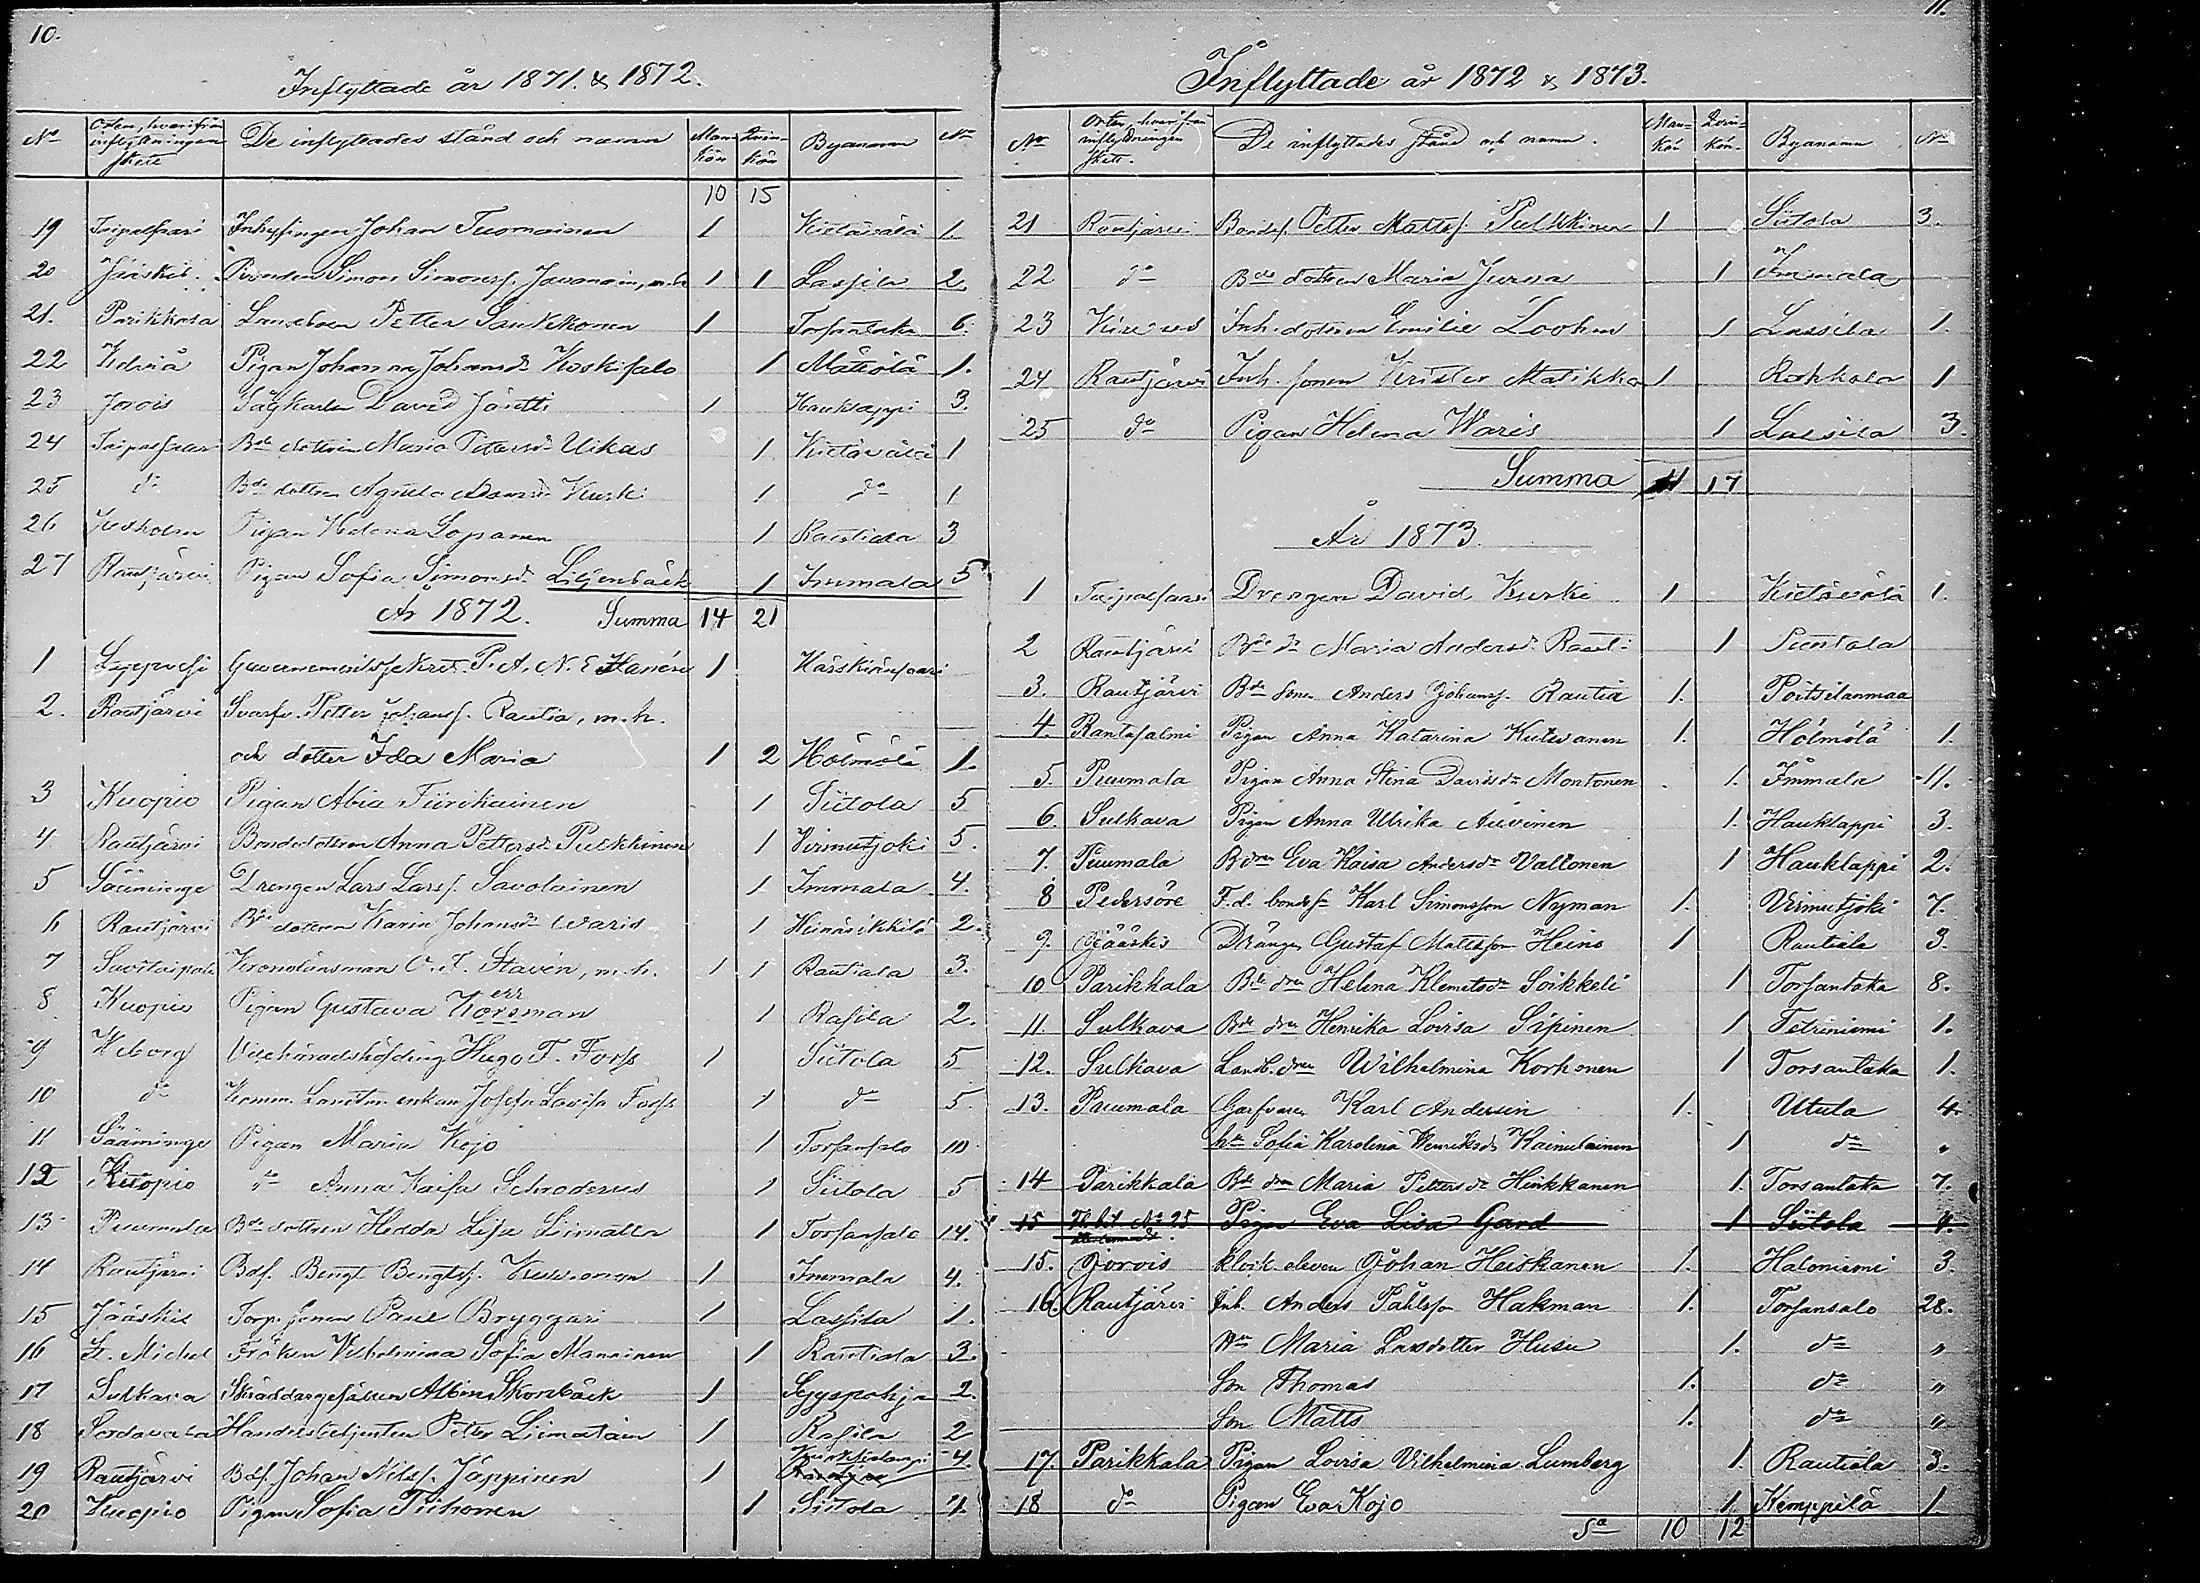 10.
Inflyttade år 1871. & 1872.
No Orten, hvarifrån inflyttningen skett De inflyttades stånd och namn Mankön Qvinkön Byanamn No
10 15
19 Taipalsaari Inhysingen Johan Tuomainen 1 Kietävälä 1.
20 Jääskis Bonden Simon Simonss. m.h. 1 1 Lassila 2.
21. Parikkala Landboen Petter Saukkonen 1 Torsantaka 6.
22 Pigan Johanna Johansdr Koskisalo 1 Mätiölä 1.
23 Jorois Sågkarlen David 1 Hauklappi 3.
24 Taipalsaari Bde dottren Maria Petersdr Ukas 1 Kietävälä 1
25 do Bde dottren Agneta Adamsdr Kurki 1 do 1
26 Kexholm Pigan Helena Sopanen 1 Rautiala 3
27 Rautjärvi Pigan Sofia Simonsdr Liljenbäck 1 Immala 5
År 1872. Summa 14 21
1 Guvernementssekret. P. A. N. E. Hanén 1 Härskiänsaari
2. Rautjärvi Svarfv. Petter Johanss. Rautia, m.h.
och dotter Ida Maria 1 2 Hölmölä 1.
3 Kuopio Pigan Abia Tiirikainen 1 Siitola 5
4 Rautjärvi Bondedottren Anna Pettersdr Pulkkinen 1 Virmutjoki 5.
5 Sääminge Drengen Lars Larss. Savolainen 1 Immala 4.
6 Rautjärvi Bde dottren Karin Johansdr Waris 1 Heinäsikkilä 2.
7 Savitaipale Kronolänsman O. F. Stavén, m.h. 1 1 Rautiala 3.
8 Kuopio Pigan Gustava Horsman
err
1 Rasila 2.
9 Wiborg Vicehäradshöfding Hugo F. Forss 1 Siitola 5
10 do Komm. Landtm. enkan Josefa Lovisa Forss 1 do 5.
11 Sääminge Pigan Maria Kojo 1 Torsansalo 10
12 Kuopio do Anna Kaisa Schroderus 1 Siitola 5
13 Puumala Bde dottren Hedda Lisa Liimatta 1 Torsansalo 14.
14 Rautjärvi Bds. Bengt Bengtss. 1 Immala 4.
15 Jääskis Torp. sonen Paul Bryggari 1 Lassila 1.
16 St. Michel Fröken Vilhelmina Sofia Manninen 1 Rautiala 3.
17 Sulkava Skräddaregesällen Albin Skorbäck 1 Syyspohja 2.
18 Sordavala Handelsbetjenten Petter Liimatain 1 Rasila 2
19 Rautjärvi Bds. Johan Nilss. Jäppinen 1 4.
20 Kuopio Pigan Sofia Tiihonen 1 Siitola 4.
11.
Inflyttade år 1872 & 1873.
No Orten, hvarifrån inflyttningen skett. De inflyttades stånd och namn. Mankön Qvinkön. Byanamn No
21 Rautjärvi Bondes. Petter Mattss. Pulkkinen 1 Siitola 3.
22 do Bde dottren Maria Jurva 1 Immala
23 Inh. dottren Emilie Loohen 1 Lassila 1.
24 Rautjärvi Inh. sonen Krister Matikka 1 Rokkala 1
25 do Pigan Helena Waris 1 Lassila 3.
Summa 11 17
År 1873.
1 Taipalsaari Drengen David Kurki 1 Kietävälä 1.
2 Rautjärvi Bde dr Maria Andersdr Rauti 1 Puntala
3. Rautjärvi Bde son Anders Johanss. Rautia 1. Poitsilanmaa
4. Rantasalmi Pigan Anna Katarina Kutvonen 1. Hölmölä 1.
5. Puumala Pigan Anna Stina Davidsdr Montonen 1. Immala 11.
6. Sulkava Pigan Anna Ulrika Auvinen 1. Hauklappi 3.
7. Puumala Bdren Eva Kaisa Andersdr Valtonen 1 Hauklappi 2.
8 Pedersöre F.d. bondes. Karl Simonsson Nyman 1. Virmutjoki 7.
9. Jääskis Drängen Gustaf Mattsson Heino 1 Rautiala 3.
10 Parikkala Bde dren Helena Klemetsdr Soikkeli 1 Torsantaka 8.
11. Sulkava Bde dren Henrika Lovisa Sipinen 1 Tetriniemi 1.
12. Sulkava Landb. dren Wilhelmina Korhonen 1 Torsantaka 1.
13. Puumala Garfvaren Karl Andersin 1. Utula 4
hu Sofia Karolina Henriksdr Kainulainen 1 do "
14 Parikkala Bde dren Maria Pettersdr Hinkkanen 1. Torsantaka 7.
15 No 25 Pigan Eva Lisa Gard 1 Siitola 4.
15. Jorois klock. eleven Johan Heiskanen 1. Haloniemi 3.
16. Rautjärvi Inh. Anders Påhlsson Hakman 1. Torsansalo 28.
Hu Maria Larsdotter Husu 1. do "
Son Thomas 1. do "
Son Matts 1. do "
17. Parikkala Pigan Lovisa Vilhelmina Lumberg 1. Rautiala 3.
18 do Pigan Eva Kojo 1. Kemppilä 1.
Sa 10 12